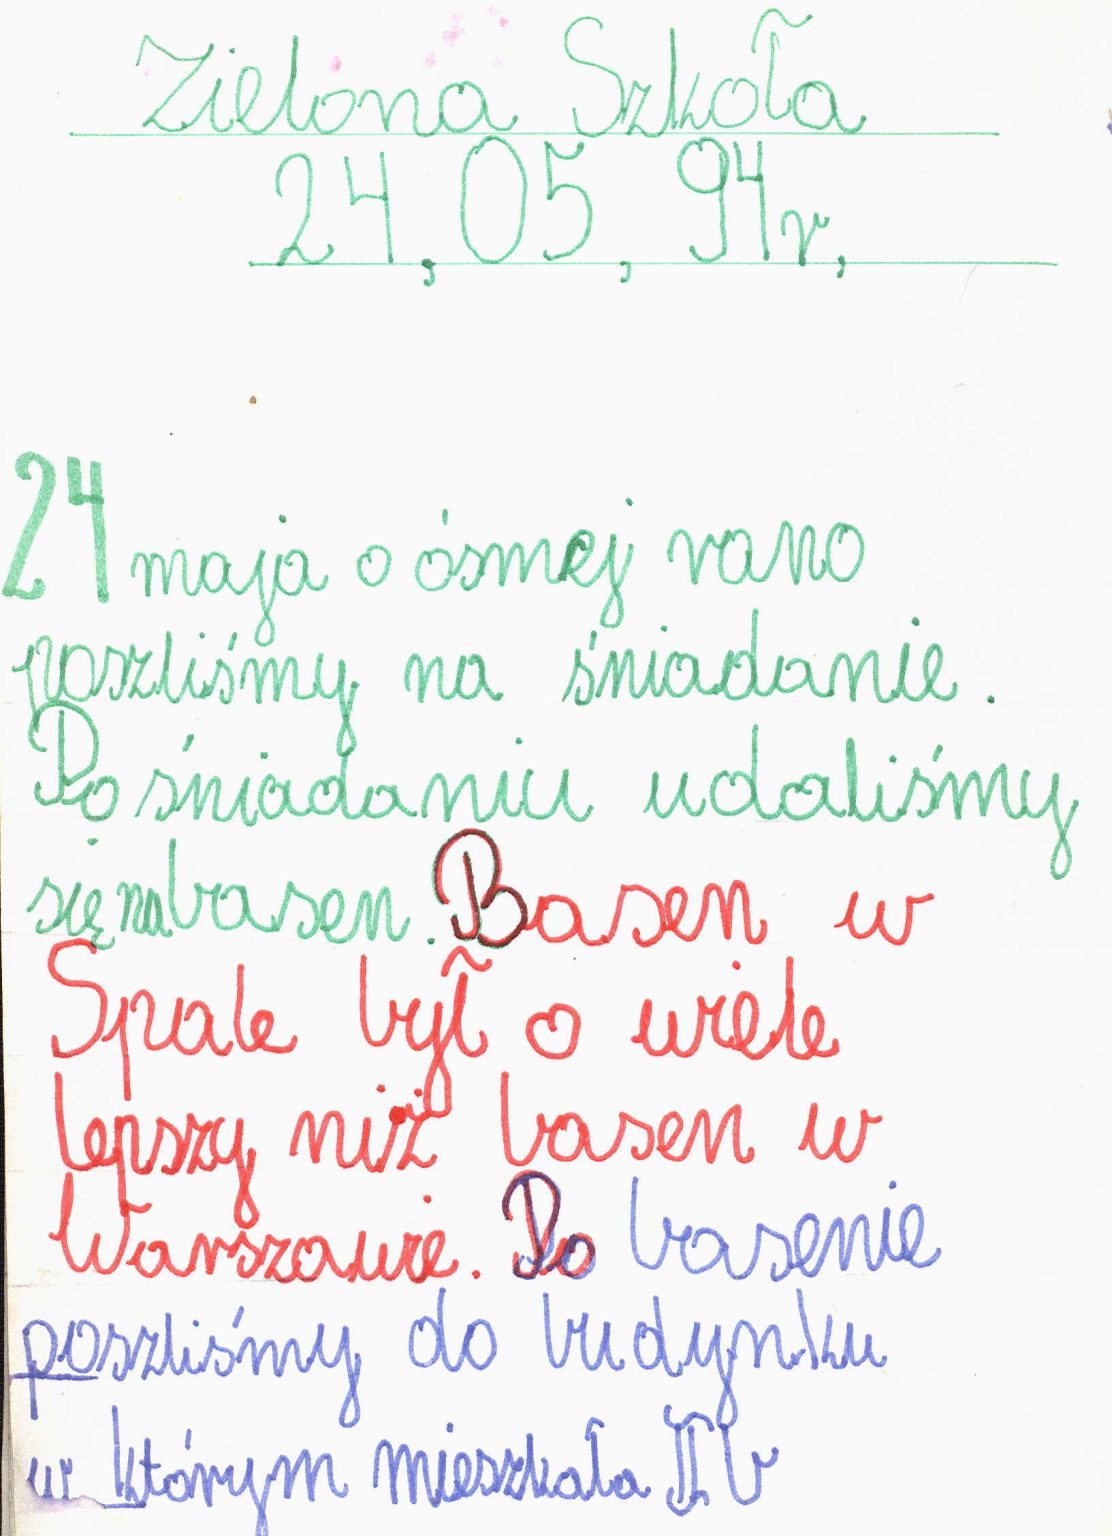 Zielona Szkoła
24, 05, 94r,
24 maja o ósmej rano
poszliśmy na śniadanie.
Po śniadaniu udaliśmy
się na basen. Basen w
Spale był o wiele
lepszy niż basen w
Warszawie. Po basenie
poszliśmy do budynku
w którym mieszkała II b